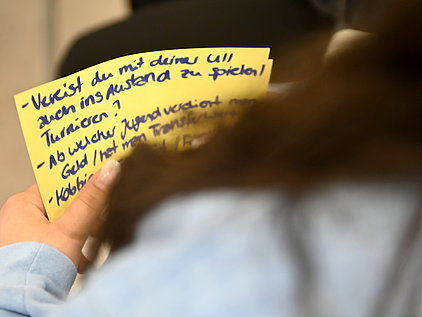 - Vereist du mit deiner U11
auch ins Ausland zu spielen/
Turnieren?
- Ab welcher Jugend verdient man
Geld / hat man Transferwert
- Hobbie